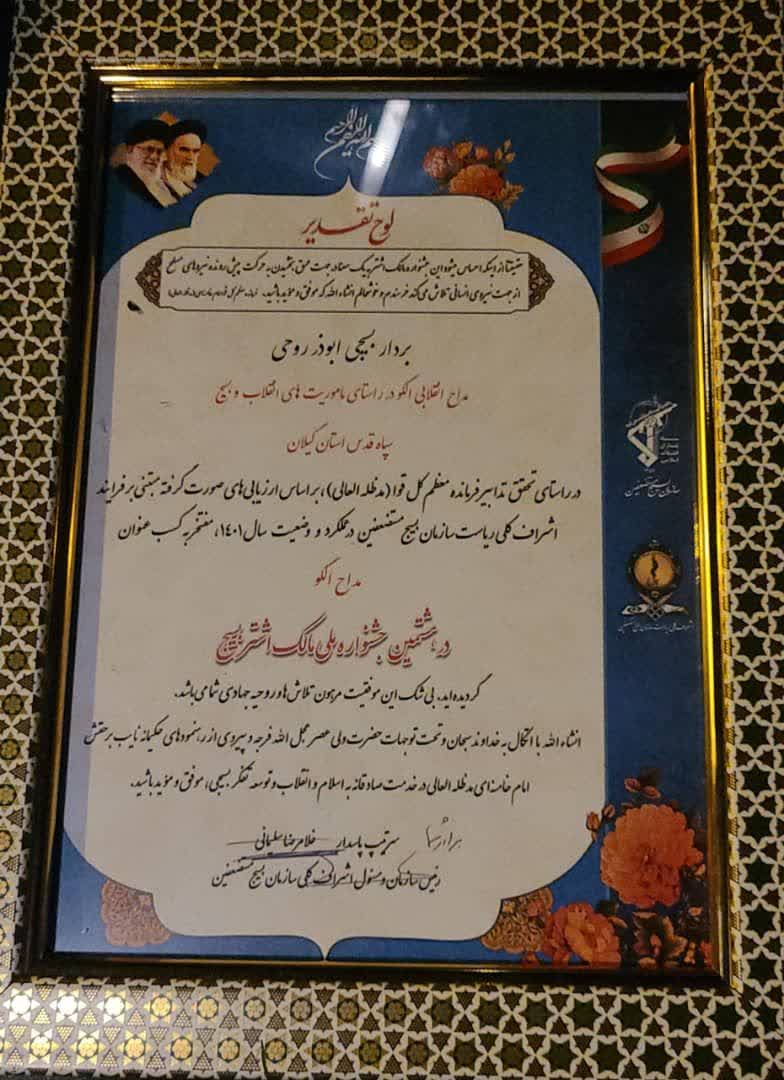 بسم الله الرحمن الرحیم
لوح تقدیر
حقیقتا از اینکه احساس میشود این جشنواره مالک اشتر به یک سنت در جهت عمق بخشیدن به حرکت پیش رونده نیروهای مسلح
از جهت نیروی انسانی تلاش می کند خرسندم و خوشحالم انشاء الله که موفق و مؤید باشید.
بردار بسیجی ابوذر روحی
مداح انقلابی الگو در راستای ماموریت های انقلاب و بسیج
سپاه قدس استان گیلان
در راستای تحقق تدابیر فرمانده معظم کل قوا (مدظله العالی)، بر اساس ارزیابی های صورت گرفته مبتنی بر فرایند
اشراف کلی ریاست سازمان بسیج مستضعفین در عملکرد و وضعیت سال ۱۴۰۱، مفتخر به کسب عنوان
مداح الگو
در هشتمین جشنواره ملی مالک اشتر بسیج
گردیده اید. بی شک این موفقیت مرهون تلاش ها و روحیه جهادی شما می باشد.
انشاء الله با اتکال به خداوند سبحان و تحت توجهات حضرت ولی عصر عجل الله فرجه و پیروی از رهنمودهای حکیمانه نایب بر حقش
امام خامنه ای مدظله العالی در خدمت صادقانه به اسلام و انقلاب و توسعه تفکر بسیجی، موفق و مؤید باشید.
سرتیپ پاسدار غلامرضا سلیمانی
رئیس سازمان و مسئول اشراف کلی سازمان بسیج مستضعفین
سازمان بسیج مستضعفین